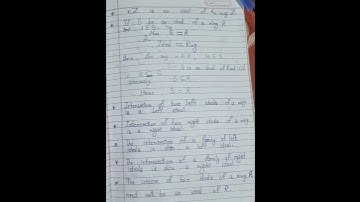 nZ is an ideal of the ring Z
If S be an ideal of a ring R
and 1 ∈ S
Then S = R
Ideal = Ring
S ⊆ R
Hence S = R
Intersection of two left ideals of a ring
is a left ideal.
Intersection of two right ideals of a ring
is a right ideal.
The intersection of a family of left
ideals is also a left ideal.
The intersection of a family of right
ideals is also a right ideal.
The union of two ideals of a ring R
need not be an ideal of R.